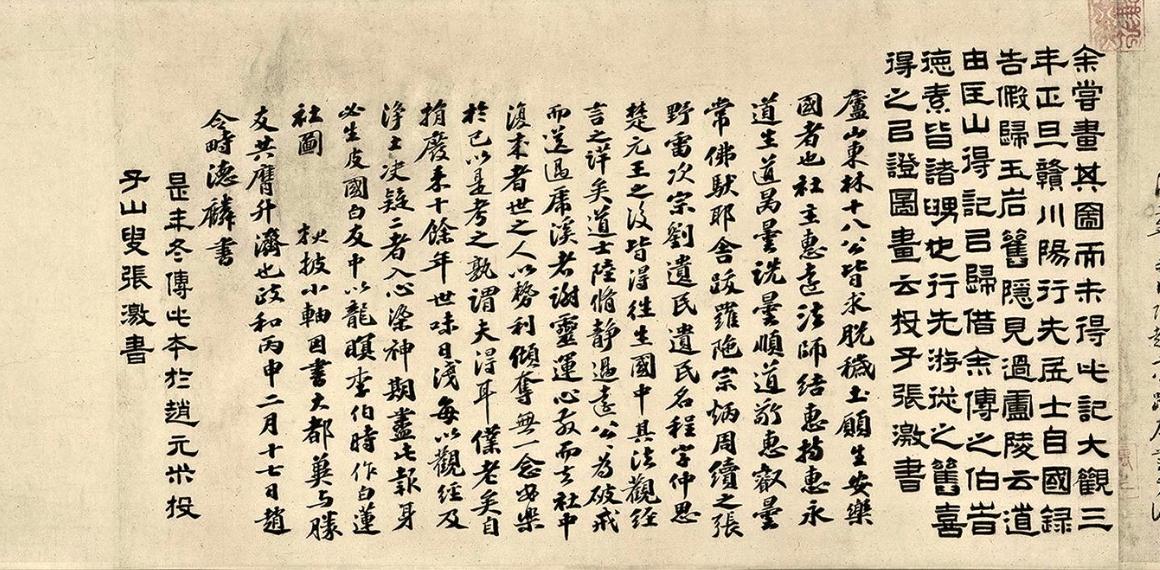 余嘗畫其圖而未得此記大觀三
年正旦贛川陽行夫孟士自國録
告假歸玉岩舊隱見過廬陵云道
由匡山得記已歸借余傳之伯昔
德素皆諸甥也行先游從之舊喜
得之已證圖畫云投子張激書
廬山東林十八公皆求脱穢土願生安樂
國者也社主惠遠法師結惠持惠永
道生道昺曇詵曇順道敬惠叡曇
常佛馱耶舍跋羅陁宗炳周續之張
野雷次宗劉遺民遺民名程字仲思
楚元王之後皆得往生國中具法觀經
言之詳矣道士陸脩静過遠公為破戒
而送過虎溪者謝靈運心亂而去社中
復來者世之人以勢利傾奪無一念安樂
於己以是考之孰謂夫得耳僕老矣自
捐廢来十餘年世味日淺每以觀經及
浄土决疑二者入心染神期盡此報身
必生皮國白友中以龍瞑李伯時作白蓮
社圖 披小軸因書大都冀与勝
友共磨升濟也政和丙申二月十七日趙
令時德麟書
是年冬傳此本於趙元米投
子山叟張激書